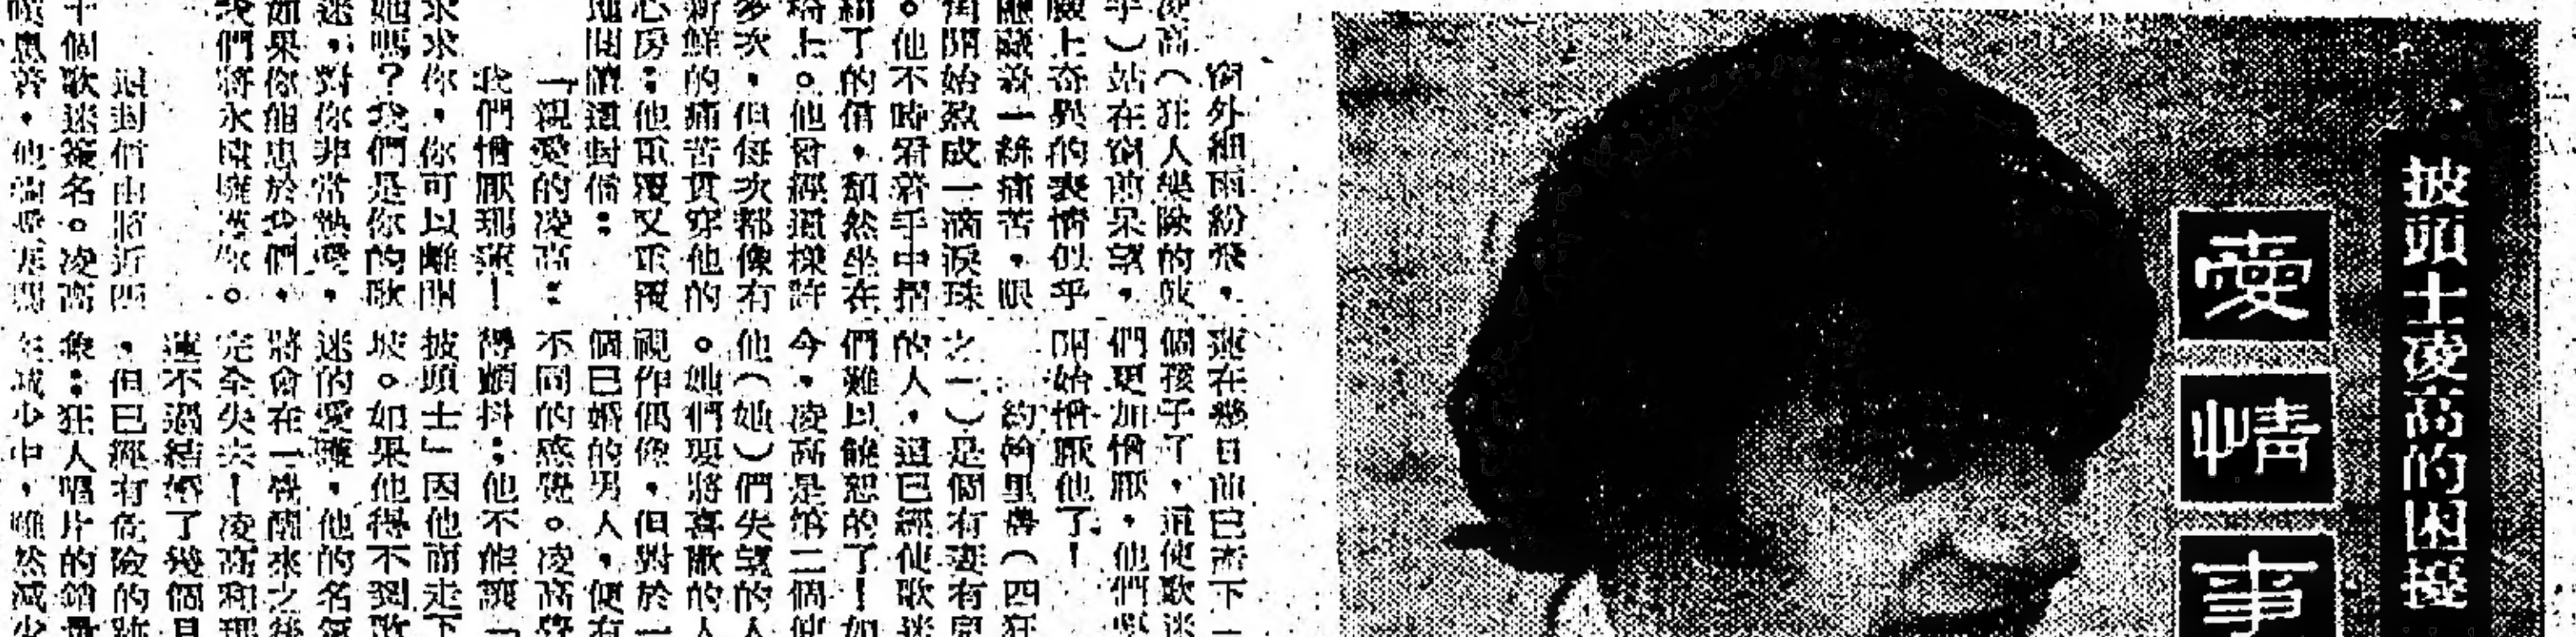 披頭士凌高的困擾
愛情事
窗外細雨紛飛，
凌高（狂人樂隊的鼓
手）站在窗前呆望，
臉上奇異的表情似乎
隱藏着一絲痛苦，眼
角開始盈成一滴淚珠
。他不時看着手中摺
縐了的信，頹然坐在
椅上。他曾經這樣許
多次，但每次都像有
新鮮的痛苦貫穿他的
心房；他重覆又重覆
地閱讀這封信：
「親愛的凌高：
我們憎厭現蓮！
求求你，你可以離開
她嗎？我們是你的歌
迷，對你非常熱愛，
如果你能忠於我們，
我們將永遠擁護你。
這封信由將近四
十個歌迷簽名。凌高
蓮在幾日前已產下一
個孩子了，這使歌迷
們更加憎厭，他們
開始憎厭他了！
約翰里農（四狂
之一）是個有妻有
的人，這已經使歌迷
們難以饒恕的了！如
今，凌高是第二個他
他（她）們失望的人
。她們要將喜歡的人
視作偶像，但對於一
個已婚的男人，便有
不同的感覺。凌高
得顫抖；他不能讓「
披頭士」因他而走下
坡。如果他得不到歌
迷的愛護，他的名氣
將會在一覺醒來之後
完全失去！凌高和現
蓮不過結婚了幾個月
，但已經有危險的跡
象：狂人唱片的銷量
在減少中，雖然減少